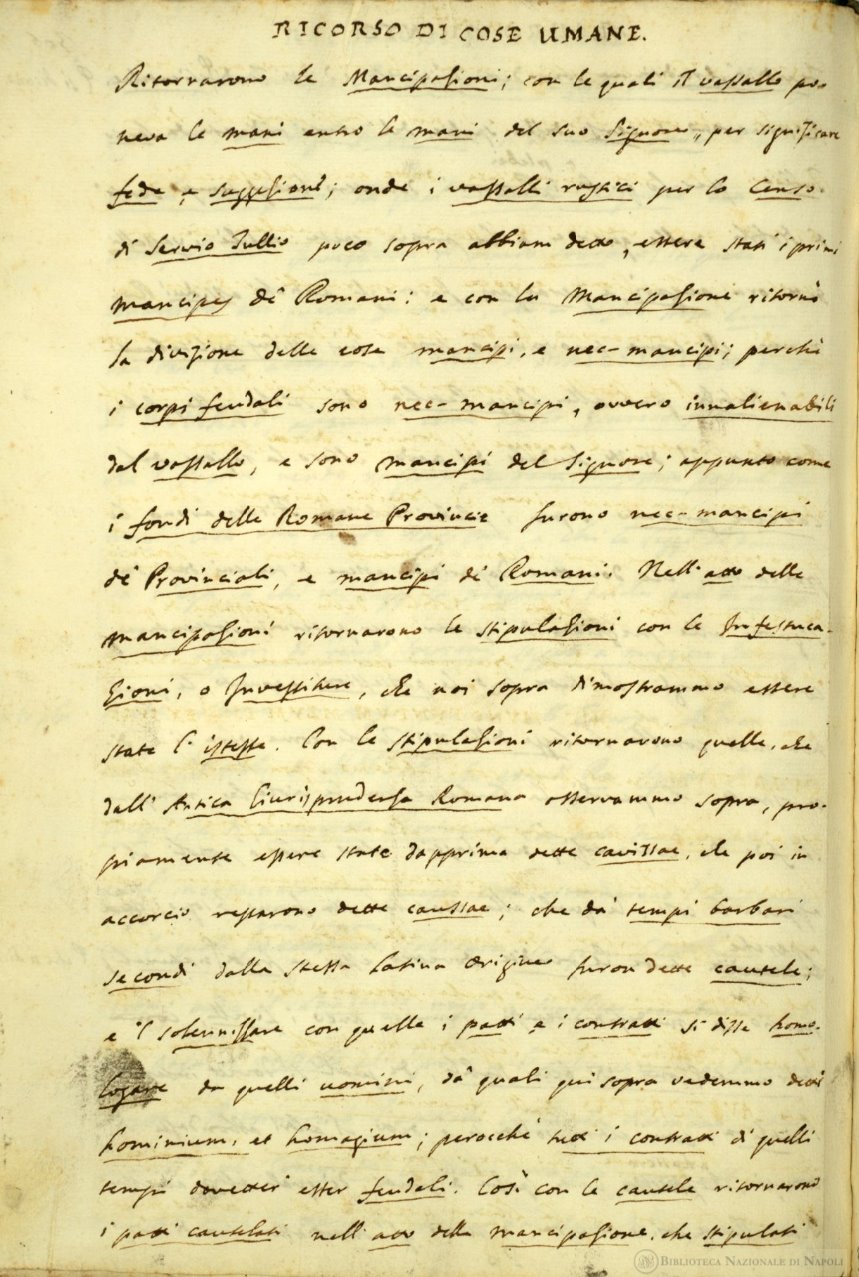 RICORSO DI COSE UMANE.
Ritornarono le Mancipazioni; con le quali il vassallo po-
neva le mani entro le mani del suo Signore, per significare
fede, e suggezione; onde i vassalli rustici per lo Censo
di Servio Tullio poco sopra abbiam detto, essere stati i primi
mancipes de' Romani: e con la Mancipazione ritornò
la divizione delle cose mancipi, e nec-mancipi; perchè
i corpi feudali sono nec-mancipi, ovvero innalienabili
dal vassallo, e sono mancipi del Signore; appunto come
i fondi delle Romane Provincie furono nec-mancipi
de' Provinciali, e mancipi de' Romani. Nell'atto delle
mancipazioni ritornarono le stipulazioni con le Infestuca-
zioni, o Investiture, che noi sopra dimostrammo essere
state l'istesse. Con le stipulazioni ritornarono quelle, che
dall'Antica Giurisprudenza Romana osservammo sopra, pro-
piamente essere state dapprima dette cavissae, che poi in
accorcio restarono dette caussae; che da' tempi barbari
secondi dalla stessa latina origine furon dette cautele;
e 'l solennizzare con quelle i patti e i contratti si disse homo-
logare da quelli uomini, da' quali qui sopra vedemmo detti
hominium, et homagium; perocchè tutti i contratti di quelli
tempi dovetter esser feudali. Così con le cautele ritornarono
i patti cautelati nell'atto della mancipazione, che stipulati
BIBLIOTECA NAZIONALE DI NAPOLI